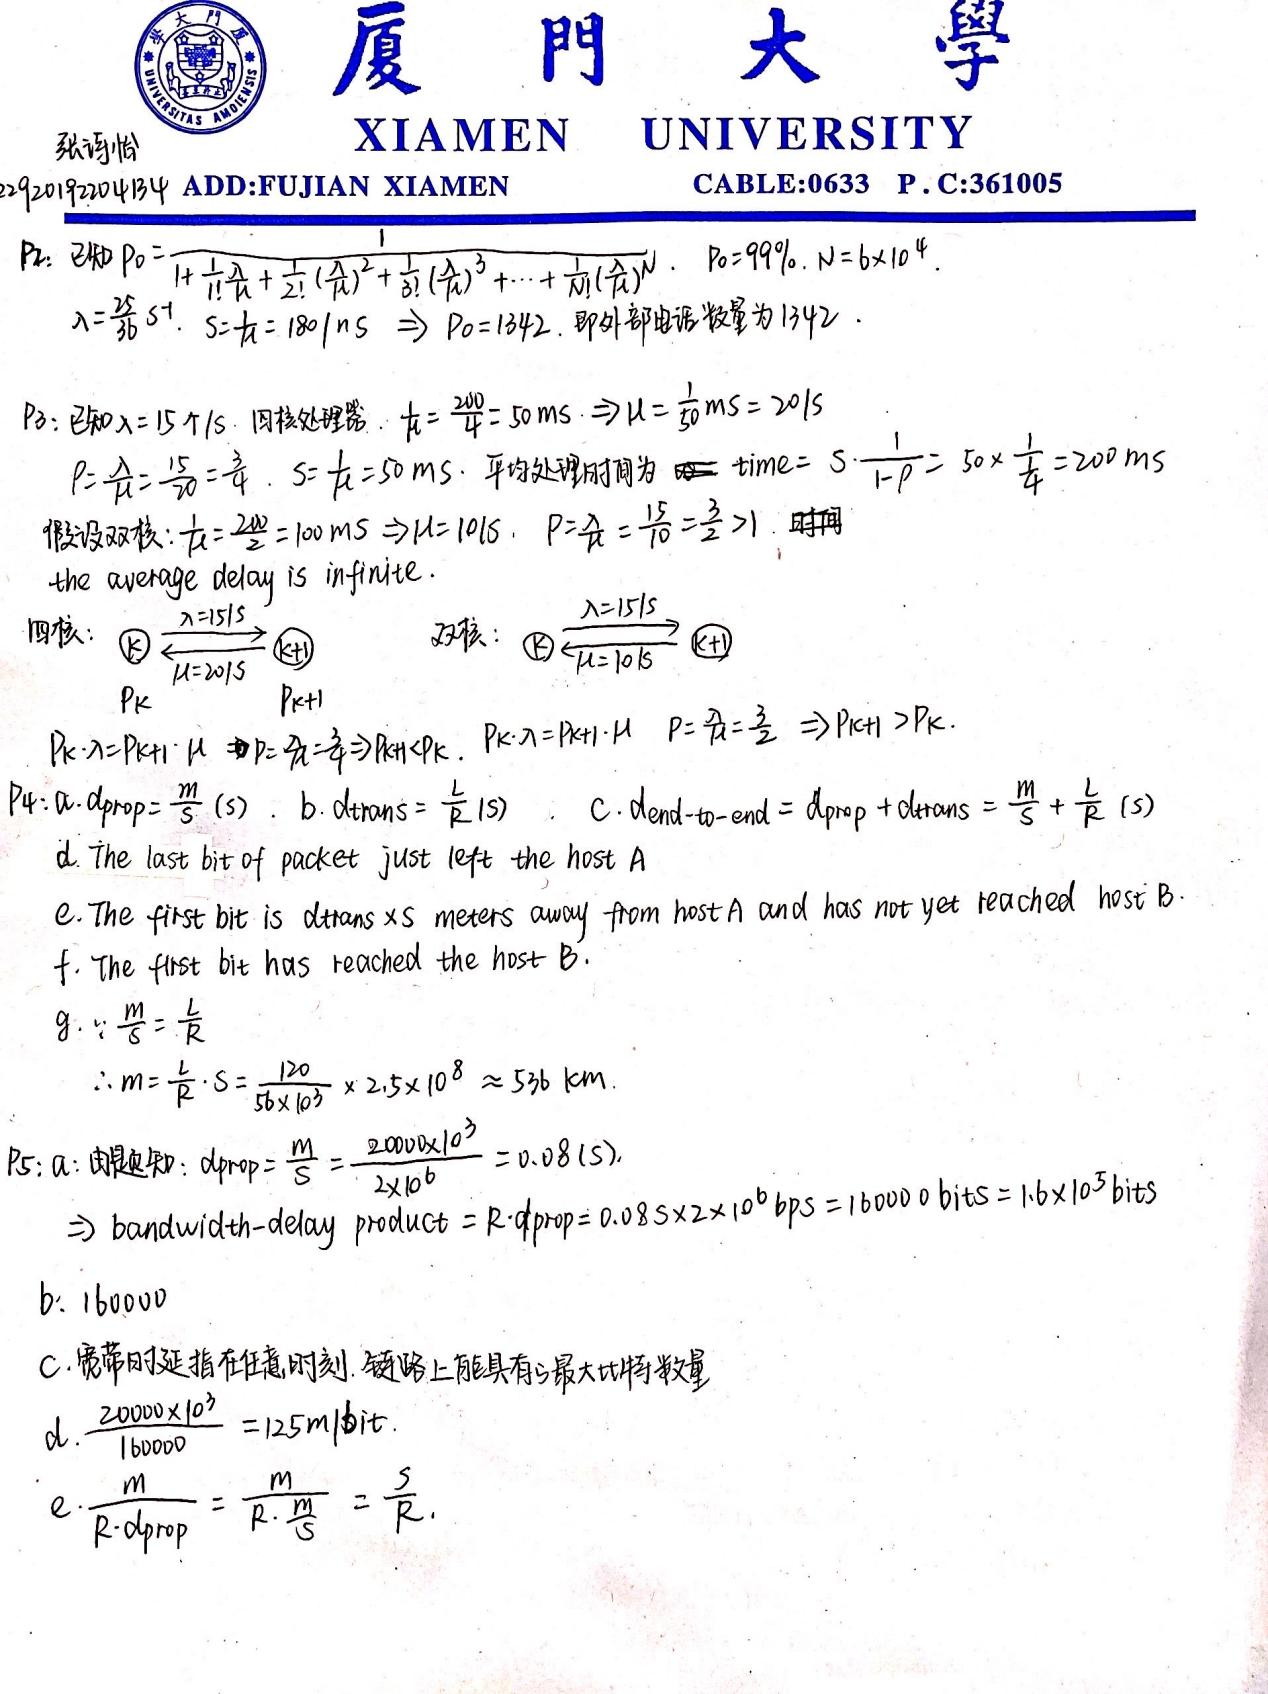 廈門大學
UNIVERSITAS AMOIENSIS
XIAMEN UNIVERSITY
张诗怡
22920192204134 ADD:FUJIAN XIAMEN CABLE:0633 P.C:361005
P2: 已知 P0 = 1/(1+\frac{1}{1!}\frac{λ}{μ}+\frac{1}{2!}(\frac{λ}{μ})^2+\frac{1}{3!}(\frac{λ}{μ})^3+⋯+\frac{1}{N!}(\frac{λ}{μ})^N). P0=99%. N=6×10^4.
λ=\frac{25}{36} s^{-1}. S=\frac{1}{μ}=180/ns ⇒ P0=1342. 即外部电话数量为1342.
P3: 已知λ=15个/s. 四核处理器. \frac{1}{μ}=\frac{200}{4}=50ms. ⇒ μ=\frac{1}{50}ms=20/s
P=\frac{λ}{μ}=\frac{15}{20}=\frac{3}{4}. S=\frac{1}{μ}=50ms. 平均处理时间为 time=S·\frac{1}{1-P}=50×\frac{1}{\frac{1}{4}}=200ms
假设双核: \frac{1}{μ}=\frac{200}{2}=100ms ⇒ μ=10/s. P=\frac{λ}{μ}=\frac{15}{10}=\frac{3}{2}>1. 时间
the average delay is infinite.
四核: K λ=15/s μ=20/s K+1 双核: K λ=15/s μ=10/s K+1
PK PK+1
PK·λ=PK+1·μ ⇒ P=\frac{λ}{μ}=\frac{3}{4} ⇒ PK+1<PK. PK·λ=PK+1·μ P=\frac{λ}{μ}=\frac{3}{2} ⇒ PK+1>PK.
P4: a. dprop=\frac{m}{s} (s). b. dtrans=\frac{L}{R} (s). c. dend-to-end=dprop+dtrans=\frac{m}{s}+\frac{L}{R} (s)
d. The last bit of packet just left the host A
e. The first bit is dtrans×s meters away from host A and has not yet reached host B.
f. The first bit has reached the host B.
g. ∵ \frac{m}{s}=\frac{L}{R}
∴ m=\frac{L}{R}·s=\frac{120}{56×10^3}×2.5×10^8≈536 km.
P5: a: 由题知: dprop=\frac{m}{s}=\frac{20000×10^3}{2×10^6}=0.08(s).
⇒ bandwidth-delay product=R·dprop=0.08s×2×10^6bps=160000bits=1.6×10^5bits
b: 160000
c. 宽带时延指在任意时刻. 链路上能具有的最大比特数量
d. \frac{20000×10^3}{160000}=125m/bit.
e. \frac{m}{R·dprop}=\frac{m}{R·\frac{m}{s}}=\frac{s}{R}.